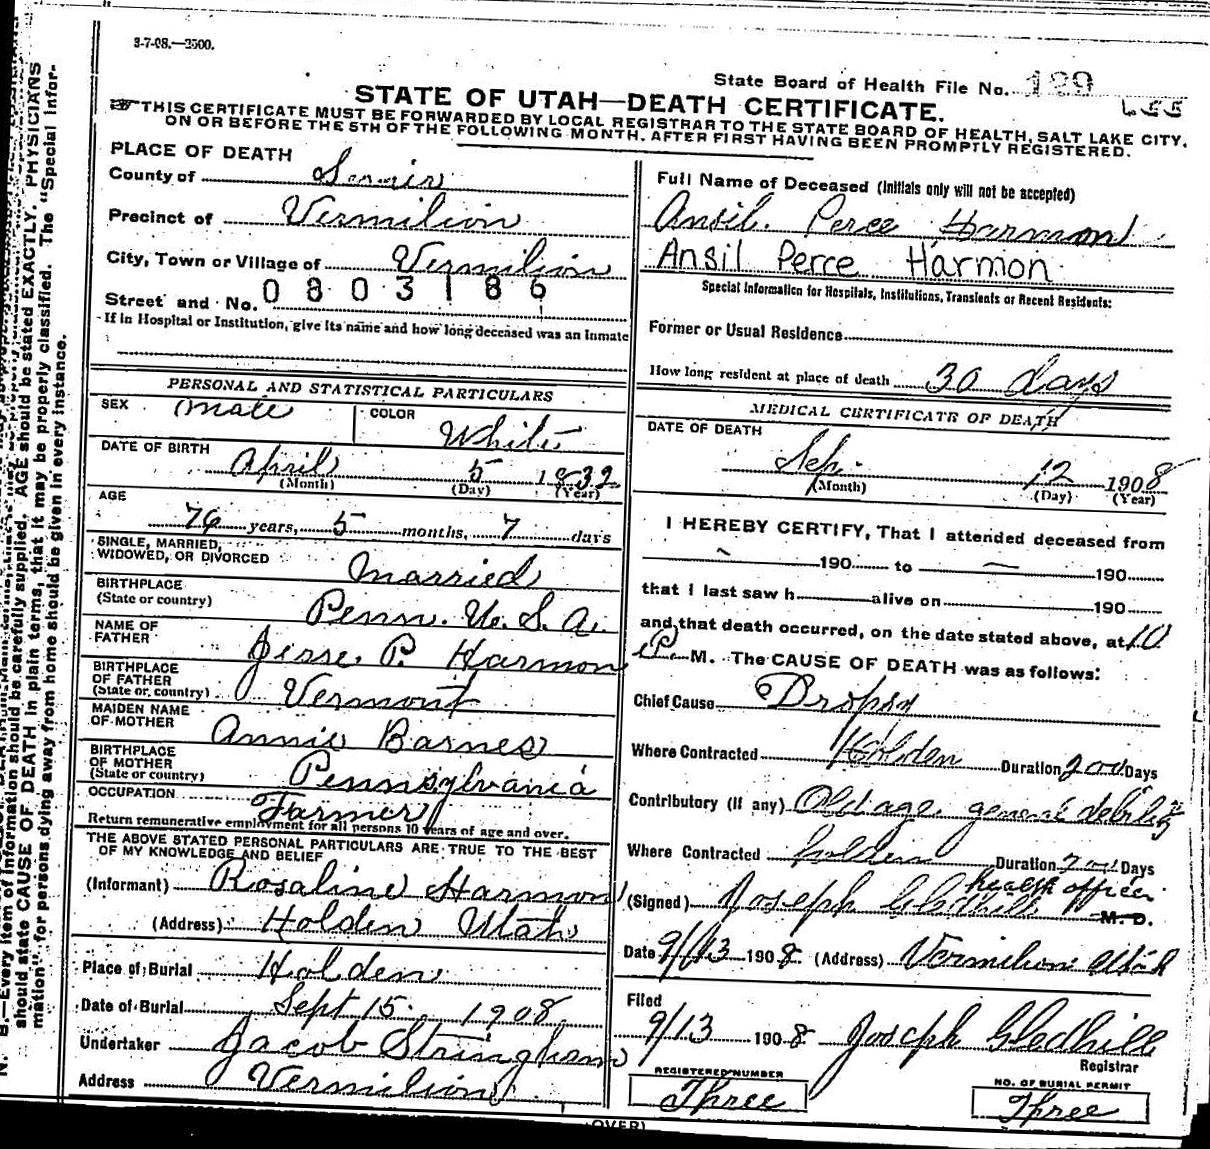 3-7-08.—2500.
State Board of Health File No. 129
STATE OF UTAH—DEATH CERTIFICATE.
☞THIS CERTIFICATE MUST BE FORWARDED BY LOCAL REGISTRAR TO THE STATE BOARD OF HEALTH, SALT LAKE CITY,
ON OR BEFORE THE 5TH OF THE FOLLOWING MONTH. AFTER FIRST HAVING BEEN PROMPTLY REGISTERED.
PLACE OF DEATH
County of Sevier
Precinct of Vermilion
City, Town or Village of Vermilion
Street and No. 0803186
If in Hospital or Institution, give its name and how long deceased was an Inmate
PERSONAL AND STATISTICAL PARTICULARS
SEX male COLOR White
DATE OF BIRTH April 5 1832
(Month) (Day) (Year)
AGE
76 years, 5 months, 7 days
SINGLE, MARRIED,
WIDOWED, OR DIVORCED Married
BIRTHPLACE
(State or country) Penn. U. S. A.
NAME OF
FATHER Jesse P. Harmon
BIRTHPLACE
OF FATHER
(State or country) Vermont
MAIDEN NAME
OF MOTHER Annie Barnes
BIRTHPLACE
OF MOTHER
(State or country) Pennsylvania
OCCUPATION Farmer
Return remunerative employment for all persons 10 years of age and over.
THE ABOVE STATED PERSONAL PARTICULARS ARE TRUE TO THE BEST
OF MY KNOWLEDGE AND BELIEF
(Informant) Rosaline Harmon
(Address) Holden Utah
Place of Burial Holden
Date of Burial Sept 15 1908
Undertaker Jacob Stringham
Address Vermilion
Full Name of Deceased (Initials only will not be accepted)
Ansil Perce Harmon
Ansil Perce Harmon
Special Information for Hospitals, Institutions, Transients or Recent Residents:
Former or Usual Residence
How long resident at place of death 30 days
MEDICAL CERTIFICATE OF DEATH
DATE OF DEATH
Sep. 12 1908
(Month) (Day) (Year)
I HEREBY CERTIFY, That I attended deceased from
190 to 190
that I last saw h alive on 190
and that death occurred, on the date stated above, at 10
P. M. The CAUSE OF DEATH was as follows:
Chief Cause Dropsy
Where Contracted Holden Duration 200 Days
Contributory (if any) Old age general debility
Where Contracted Holden Duration 200 Days
health officer
(Signed) Joseph Gledhill M. D.
Date 9/13 1908 (Address) Vermilion Utah
Filed
9/13 1908 Joseph Gledhill
Registrar
REGISTERED NUMBER
Three
NO. OF BURIAL PERMIT
Three
(OVER)
N. B.—Every item of information should be carefully supplied. AGE should be stated EXACTLY. PHYSICIANS
should state CAUSE OF DEATH in plain terms, that it may be properly classified. The "Special Infor-
mation" for persons dying away from home should be given in every instance.